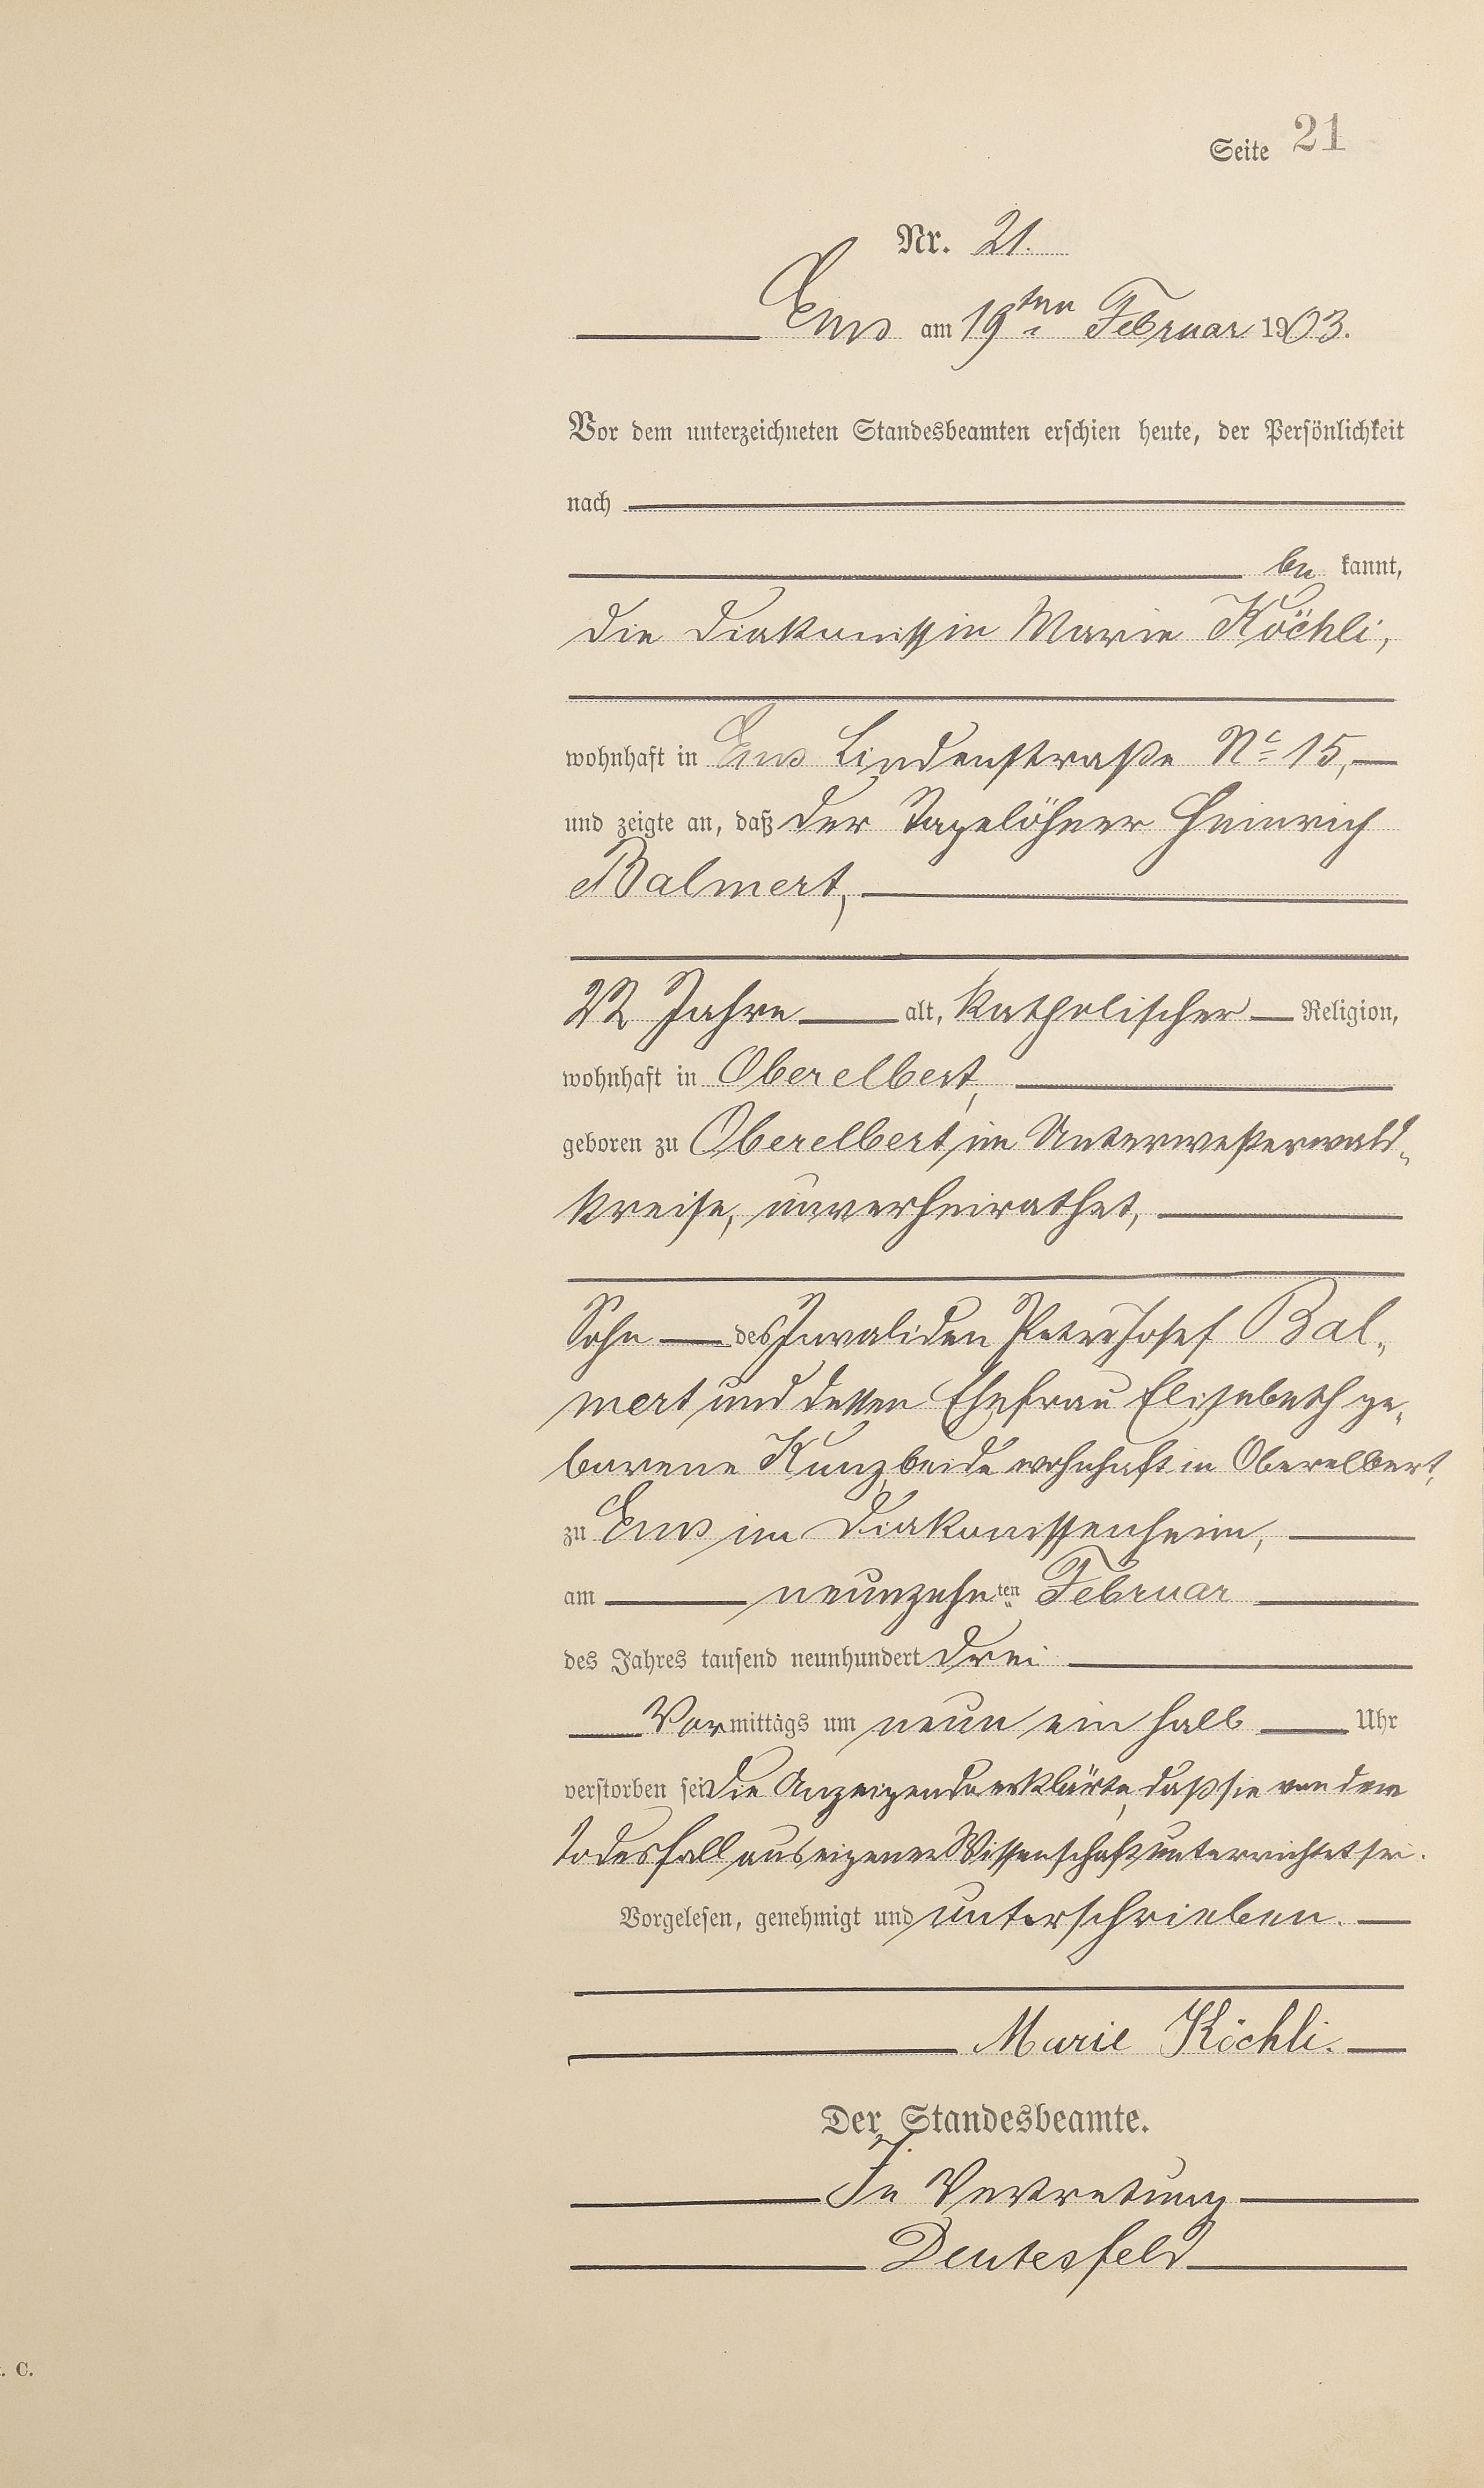 Seite 21
Nr. 21.
Ems am 19ten Februar 1903.
Vor dem unterzeichneten Standesbeamten erschien heute, der Persönlichkeit
nach
be kannt,
die Diakonissin Marie Köchli,
wohnhaft in Ems Lindenstraße No 15,
und zeigte an, daß der Tagelöhner Heinrich
Balmert,
22 Jahre alt, katholischer Religion,
wohnhaft in Oberelbert,
geboren zu Oberelbert im Unterwesterwald-
kreise, unverheirathet,
Sohn des Invaliden Peter Josef Bal-
mert und dessen Ehefrau Elisabeth ge-
borene Kunz, beide wohnhaft in Oberelbert,
zu Ems im Diakonissenheim,
am neunzehnten Februar
des Jahres tausend neunhundert drei
Vormittags um neun ein halb Uhr
verstorben sei. Die Anzeigende erklärte, daß sie von dem
Todesfall aus eigener Wissenschaft unterrichtet sei.
Vorgelesen, genehmigt und unterschrieben.
Marie Köchli.
Der Standesbeamte.
In Vertretung
Deutesfeld
. C.